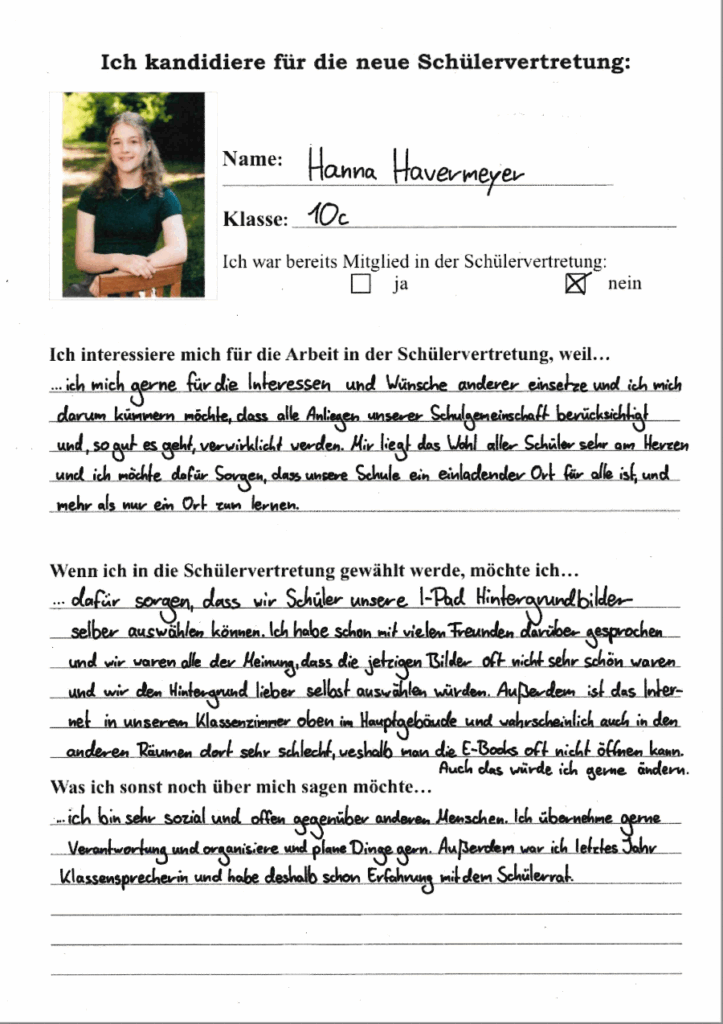 Ich kandidiere für die neue Schülervertretung:
Name: Hanna Havermeyer
Klasse: 10c
Ich war bereits Mitglied in der Schülervertretung:
ja nein
Ich interessiere mich für die Arbeit in der Schülervertretung, weil…
...ich mich gerne für die Interessen und Wünsche anderer einsetze und ich mich
darum kümmern möchte, dass alle Anliegen unserer Schulgemeinschaft berücksichtigt
und, so gut es geht, verwirklicht werden. Mir liegt das Wohl aller Schüler sehr am Herzen
und ich möchte dafür Sorgen, dass unsere Schule ein einladender Ort für alle ist, und
mehr als nur ein Ort zum lernen.
Wenn ich in die Schülervertretung gewählt werde, möchte ich…
... dafür sorgen, dass wir Schüler unsere I-Pad Hintergrundbilder
selber auswählen können. Ich habe schon mit vielen Freunden darüber gesprochen
und wir waren alle der Meinung, dass die jetzigen Bilder oft nicht sehr schön waren
und wir den Hintergrund lieber selbst auswählen würden. Außerdem ist das Inter-
net in unserem Klassenzimmer oben im Hauptgebäude und wahrscheinlich auch in den
anderen Räumen dort sehr schlecht, weshalb man die E-Books oft nicht öffnen kann.
Auch das würde ich gerne ändern.
Was ich sonst noch über mich sagen möchte…
...ich bin sehr sozial und offen gegenüber anderen Menschen. Ich übernehme gerne
Verantwortung und organisiere und plane Dinge gern. Außerdem war ich letztes Jahr
Klassensprecherin und habe deshalb schon Erfahrung mit dem Schülerrat.